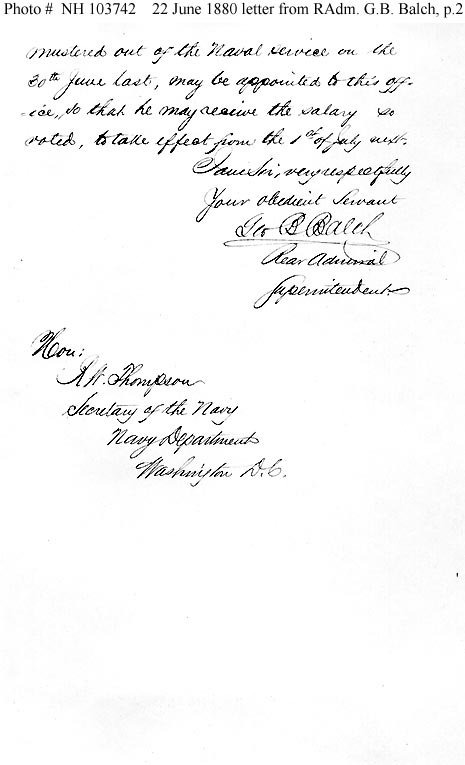 Photo # NH 103742 22 June 1880 letter from RAdm. G.B. Balch, p.2
mustered out of the Naval service on the
30th June last, may be appointed to this off-
-ice, so that he may receive the salary so
voted, to take effect from the 1st of July next.
I am Sir, very respectfully
Your obedient Servant
Geo B Balch
Rear Admiral
Superintendent
Hon:
R. W. Thompson
Secretary of the Navy
Navy Department
Washington D.C.